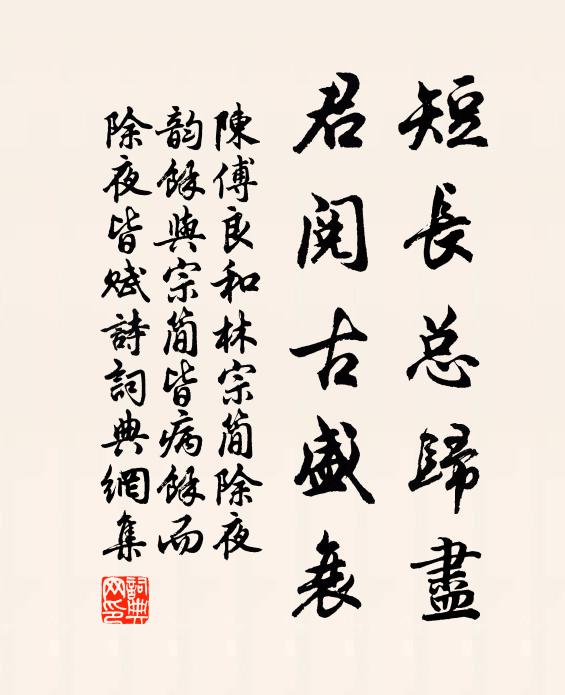 短長总歸盡
君閱古盛衰
陳傅良和林宗簡除夜
韵餘與宗簡皆病餘而
除夜皆賦詩詞典網集
詞典
网印